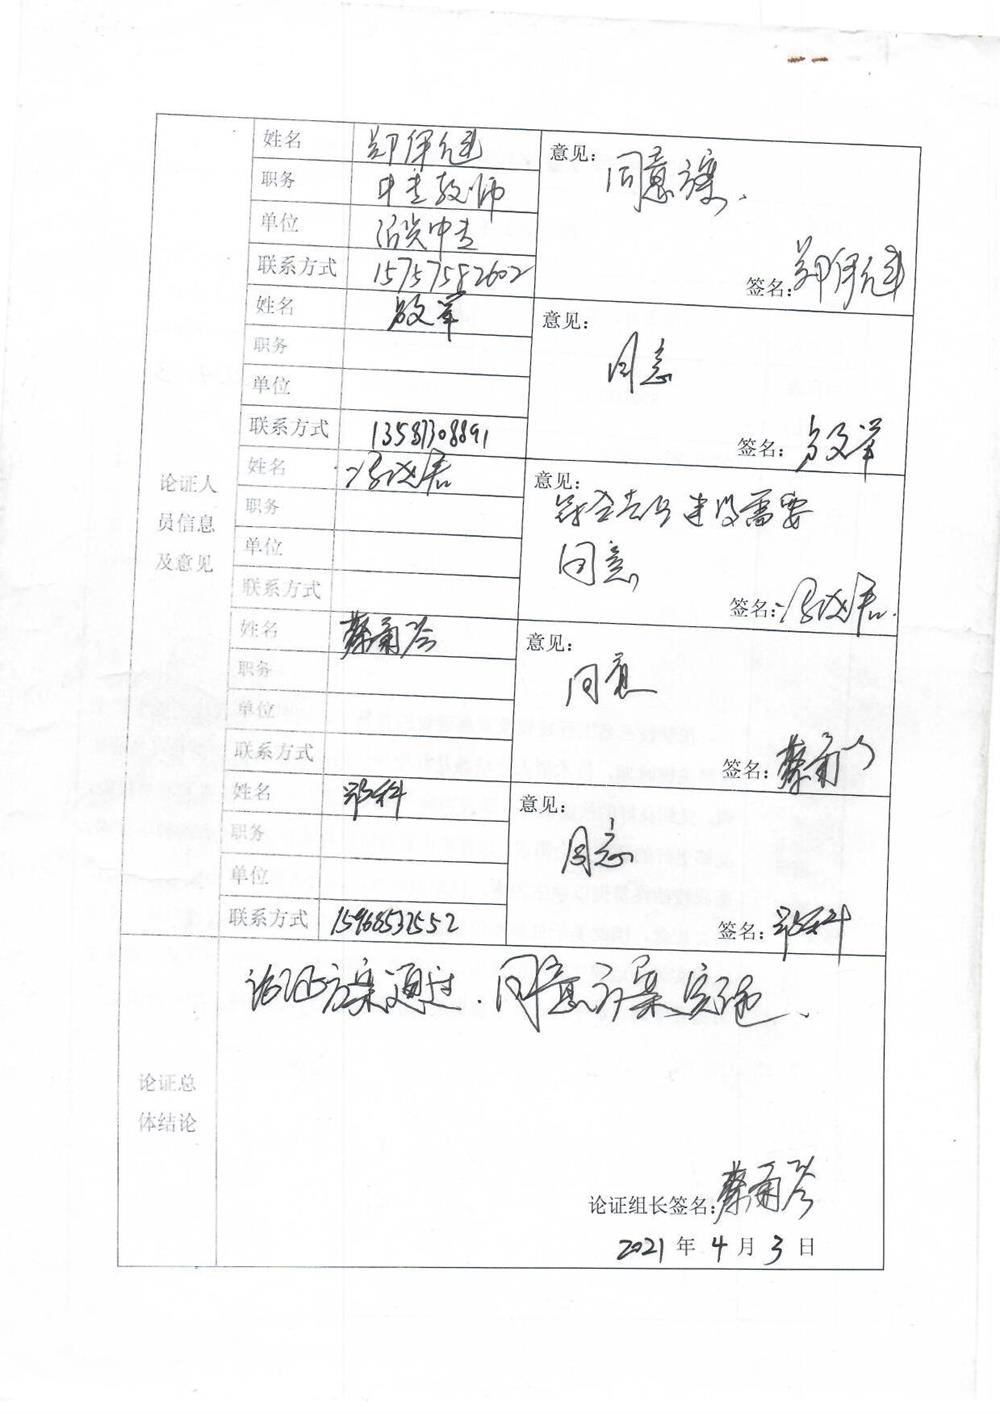 论证人
员信息
及意见
姓名
职务 中专教师
单位 中专
联系方式 15757582602
意见： 同意方案.
签名：
姓名
职务
单位
联系方式 13587308891
意见：
同意
签名：
姓名
职务
单位
联系方式
意见：
建设需要
同意
签名：
姓名 蔡菊芬
职务
单位
联系方式
意见：
同意
签名： 蔡菊
姓名 郑科
职务
单位
联系方式 15968532552
意见：
同意
签名： 郑科
论证总
体结论
论证方案通过. 同意方案实施.
论证组长签名： 蔡菊芬
2021 年 4 月 3 日